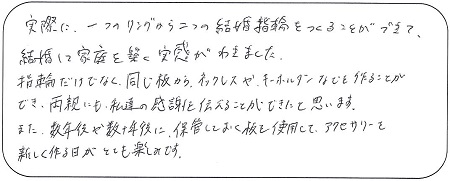 実際に、一つのリングから二つの結婚指輪をつくることができて、
結婚して家庭を築く実感がわきました。
指輪だけでなく、同じ板から、ネックレスや、キーホルダーなども作ることが
でき、両親にも、私達の感謝を伝えることができたと思います。
また、数年後や数十年後に、保管しておく板を使用して、アクセサリーを
新しく作る日が とても楽しみです。